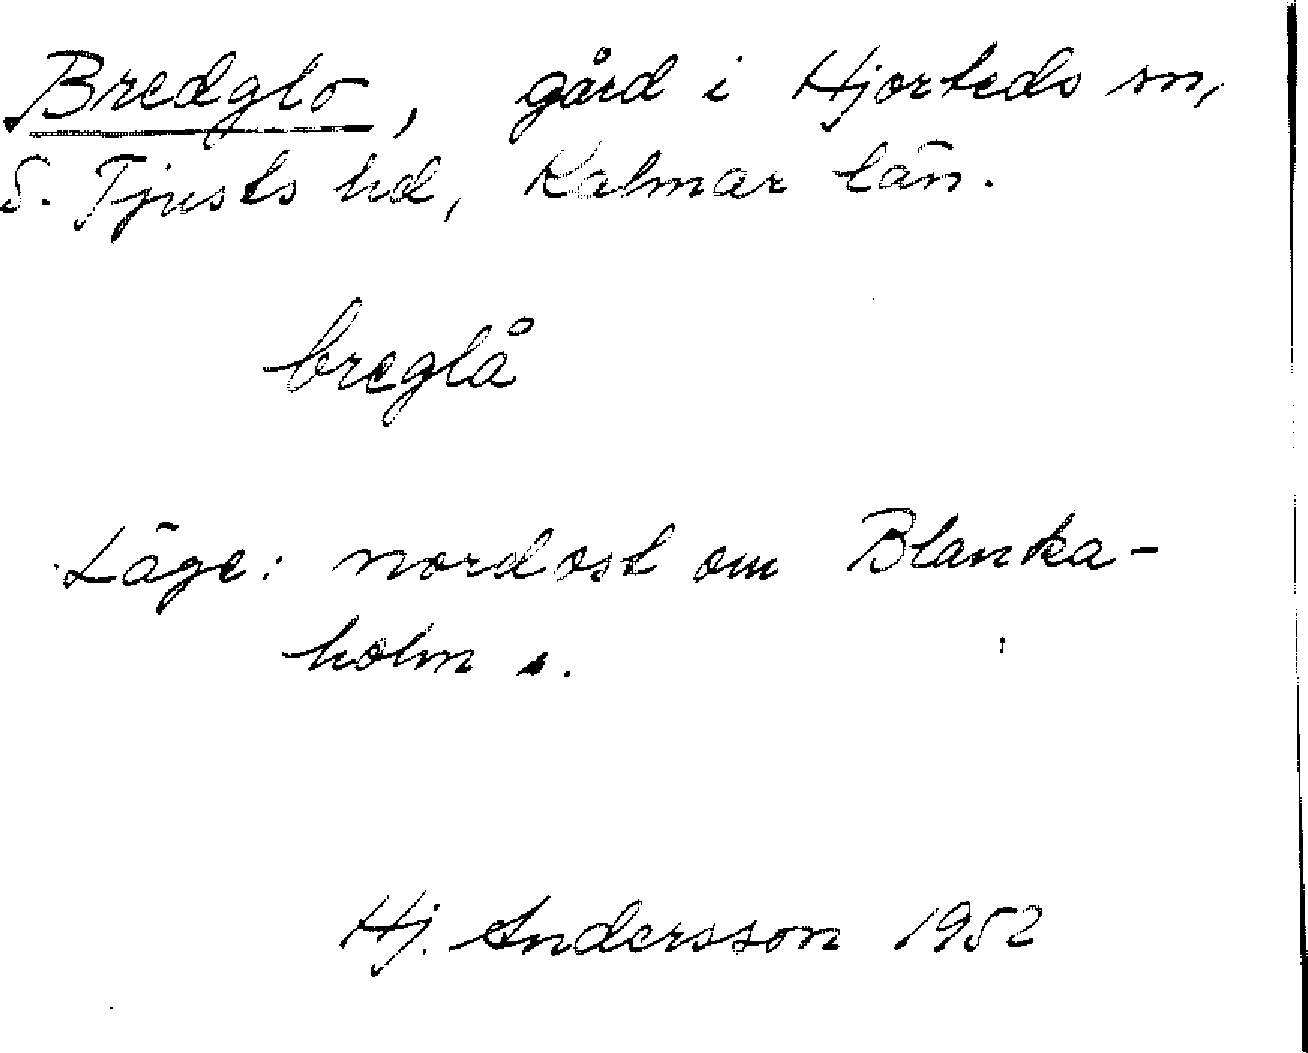 Bredglo, gård i Hjorteds sn,
S. Tjusts hd, Kalmar län.
breglå
Läge: nordost om Blanka-
holm s.
Hj. Andersson 1952